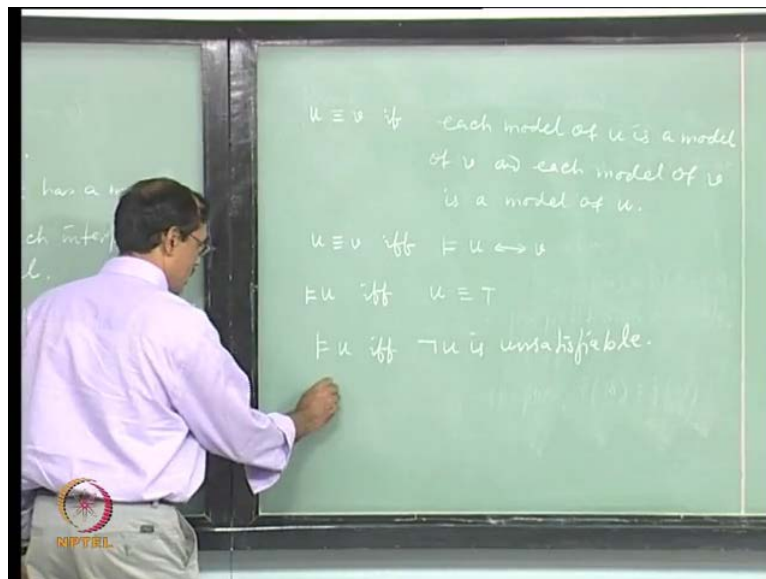 has a
u ≡ v if each model of u is a model
of v and each model of v
is a model of u.
u ≡ v iff ⊨ u ↔ v
⊨ u iff u ≡ ⊤
⊨ u iff ¬u is unsatisfiable.
NPTEL